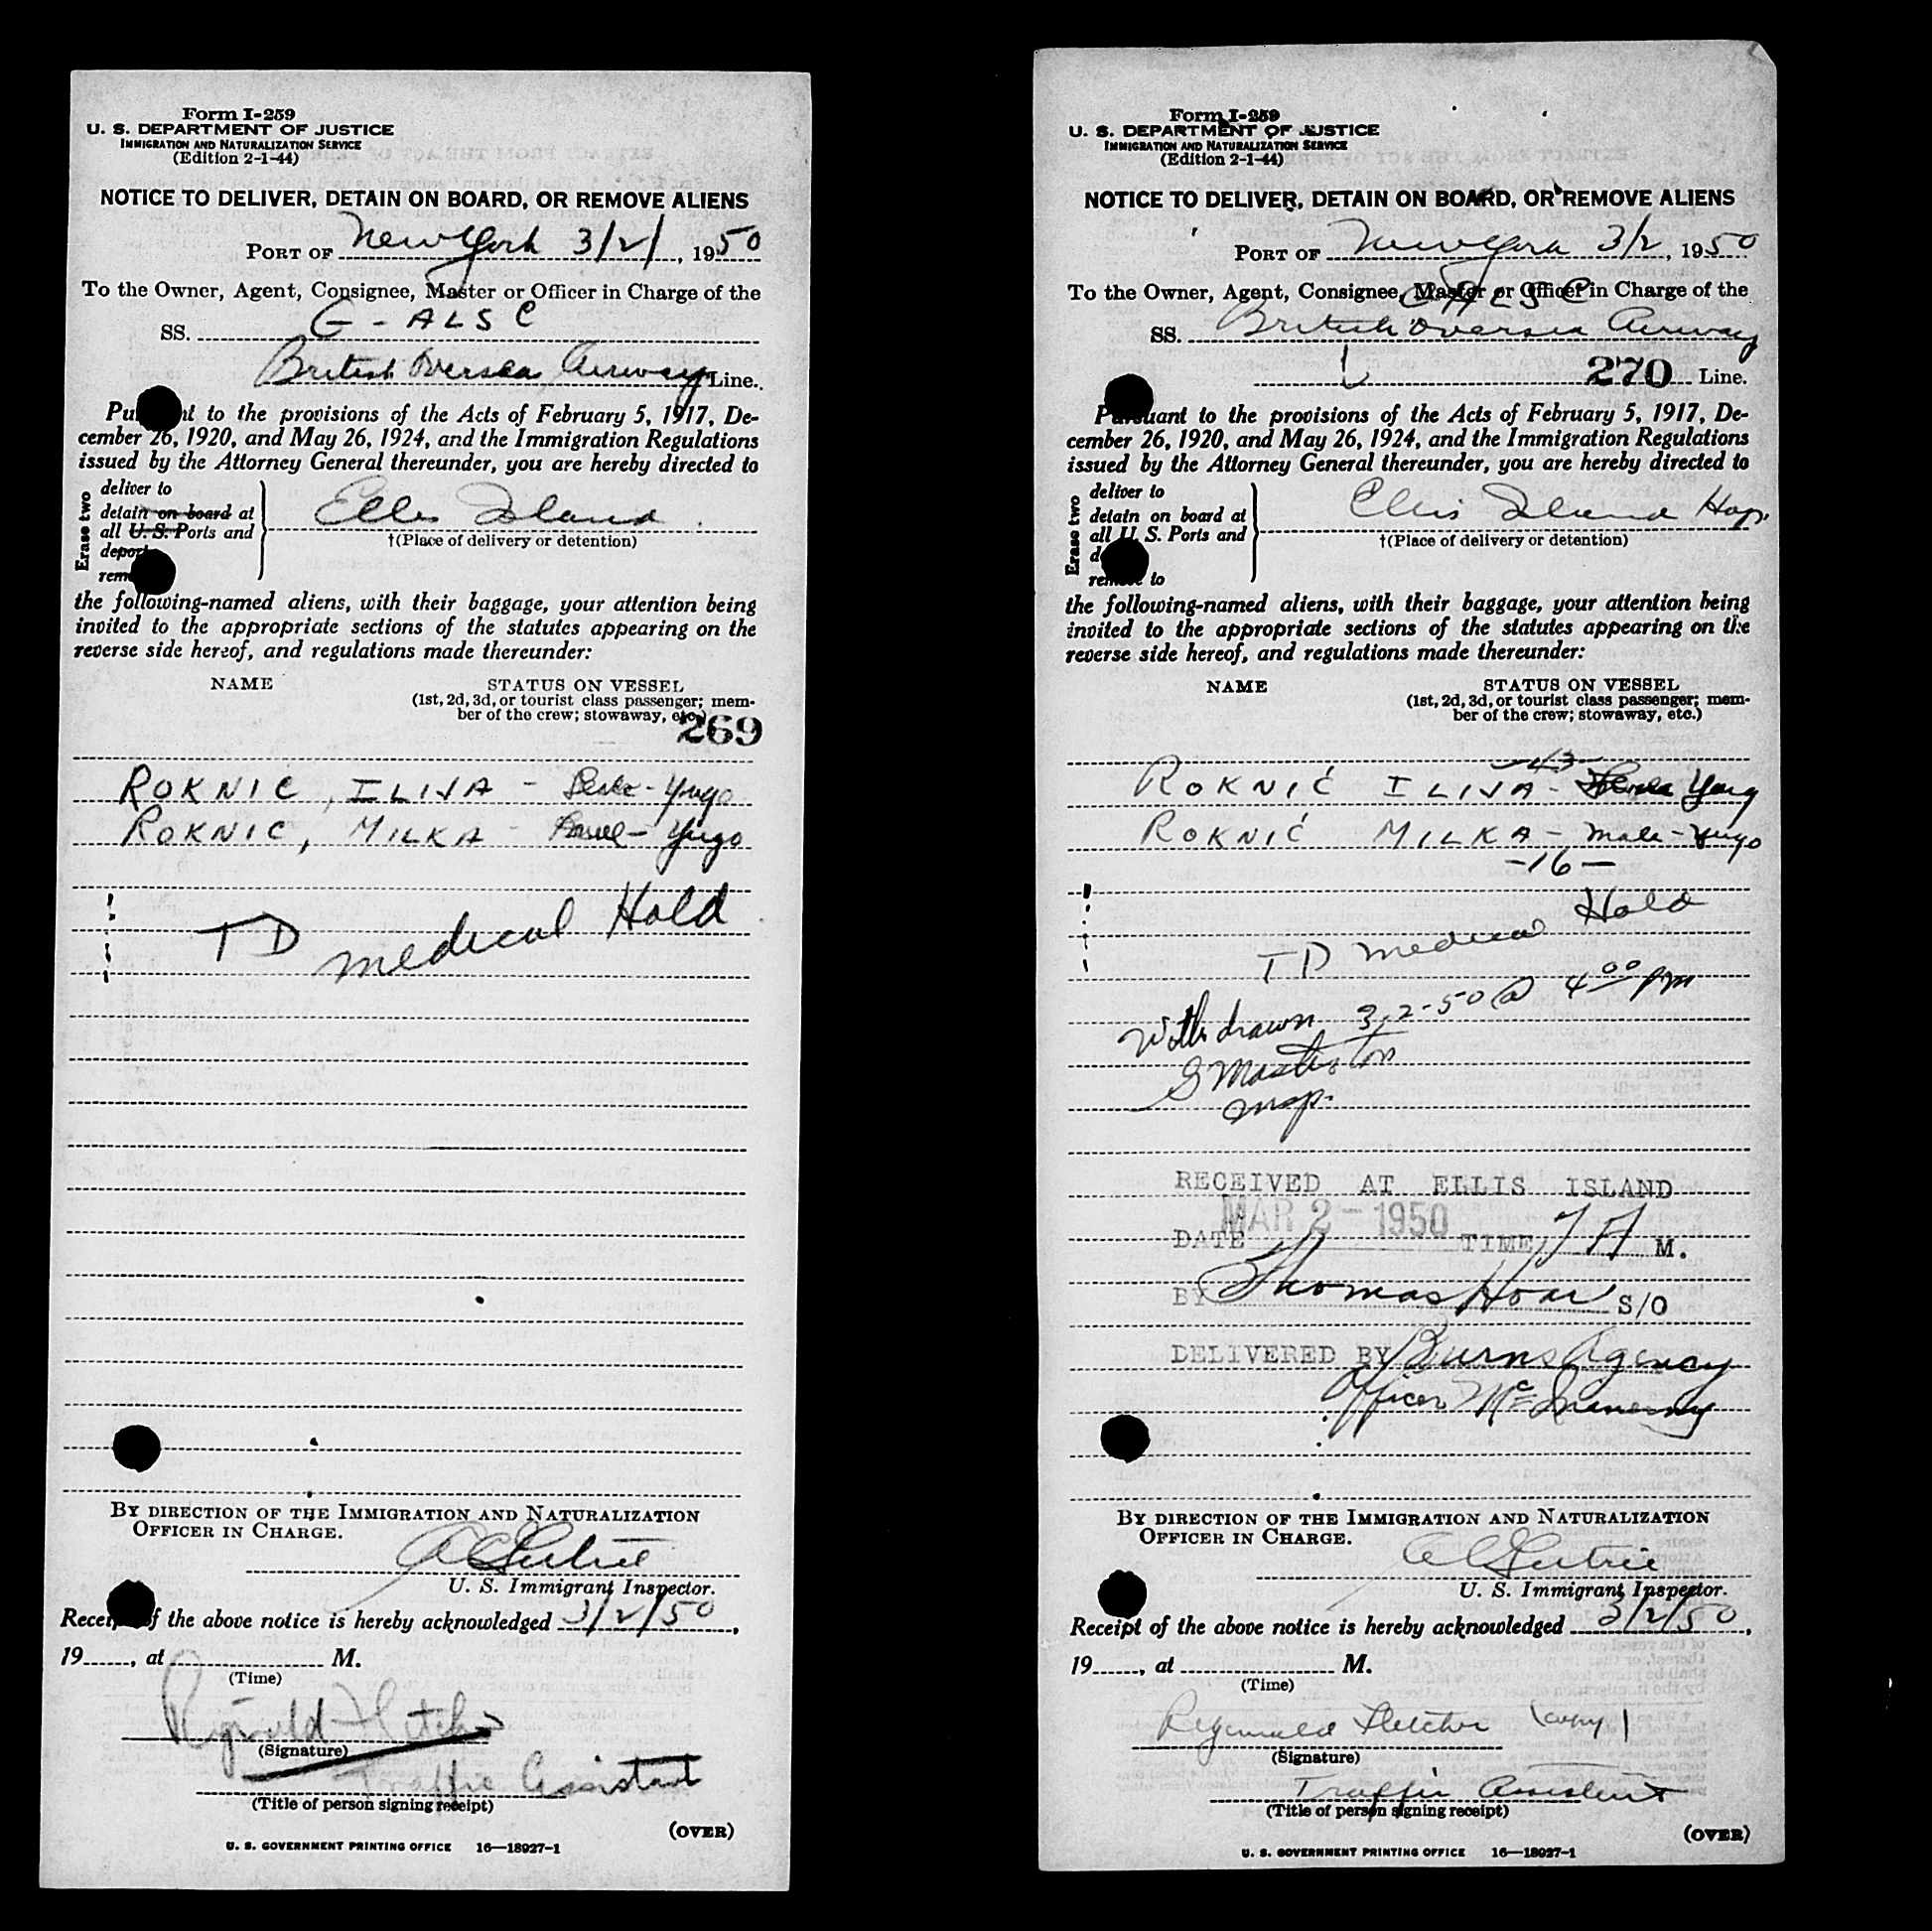 Form I-259
U. S. DEPARTMENT OF JUSTICE
IMMIGRATION AND NATURALIZATION SERVICE
(Edition 2-1-44)
NOTICE TO DELIVER, DETAIN ON BOARD, OR REMOVE ALIENS
PORT OF New York 3/2/, 1950
To the Owner, Agent, Consignee, Master or Officer in Charge of the
SS. G-ALSC
British Oversea Airway Line.
to the provisions of the Acts of February 5, 1917, De-
cember 26, 1920, and May 26, 1924, and the Immigration Regulations
issued by the Attorney General thereunder, you are hereby directed to
Erase two
deliver to
detain on board at
all U. S. Ports and
Ellis Island
†(Place of delivery or detention)
the following-named aliens, with their baggage, your attention being
invited to the appropriate sections of the statutes appearing on the
reverse side hereof, and regulations made thereunder:
NAME STATUS ON VESSEL
(1st, 2d, 3d, or tourist class passenger; mem-
ber of the crew; stowaway, etc.)
269
ROKNIC, ILIJA - Yugo
ROKNIC, MILKA - Yugo
TD medical Hold
BY DIRECTION OF THE IMMIGRATION AND NATURALIZATION
OFFICER IN CHARGE.
U. S. Immigrant Inspector.
Receipt of the above notice is hereby acknowledged 3/2/50,
19......, at .................. M.
(Time)
Reginald Fletcher
(Signature)
Traffic Assistant
(Title of person signing receipt)
(OVER)
U. S. GOVERNMENT PRINTING OFFICE 16—18927-1
Form I-259
U. S. DEPARTMENT OF JUSTICE
IMMIGRATION AND NATURALIZATION SERVICE
(Edition 2-1-44)
NOTICE TO DELIVER, DETAIN ON BOARD, OR REMOVE ALIENS
PORT OF New York 3/2, 1950
To the Owner, Agent, Consignee, Master or Officer in Charge of the
G-ALSC
SS. British Oversea Airway
270 Line.
Pursuant to the provisions of the Acts of February 5, 1917, De-
cember 26, 1920, and May 26, 1924, and the Immigration Regulations
issued by the Attorney General thereunder, you are hereby directed to
Erase two
deliver to
detain on board at
all U. S. Ports and
remove to
Ellis Island Hosp.
†(Place of delivery or detention)
the following-named aliens, with their baggage, your attention being
invited to the appropriate sections of the statutes appearing on the
reverse side hereof, and regulations made thereunder:
NAME STATUS ON VESSEL
(1st, 2d, 3d, or tourist class passenger; mem-
ber of the crew; stowaway, etc.)
-43-
ROKNIĆ ILIJA - Yug
ROKNIĆ MILKA - male - Yugo
-16-
TD medical Hold
Withdrawn 3-2-50 @ 4 00 PM
Insp.
RECEIVED AT ELLIS ISLAND
DATE MAR 2 - 1950 TIME 7 A M.
BY Thomas Hoar S/O
DELIVERED BY Burns Agency
Officer
BY DIRECTION OF THE IMMIGRATION AND NATURALIZATION
OFFICER IN CHARGE.
U. S. Immigrant Inspector.
Receipt of the above notice is hereby acknowledged 3/2/50,
19......, at .................. M.
(Time)
Reginald Fletcher (copy)
(Signature)
Traffic Assistant
(Title of person signing receipt)
(OVER)
U. S. GOVERNMENT PRINTING OFFICE 16—18927-1